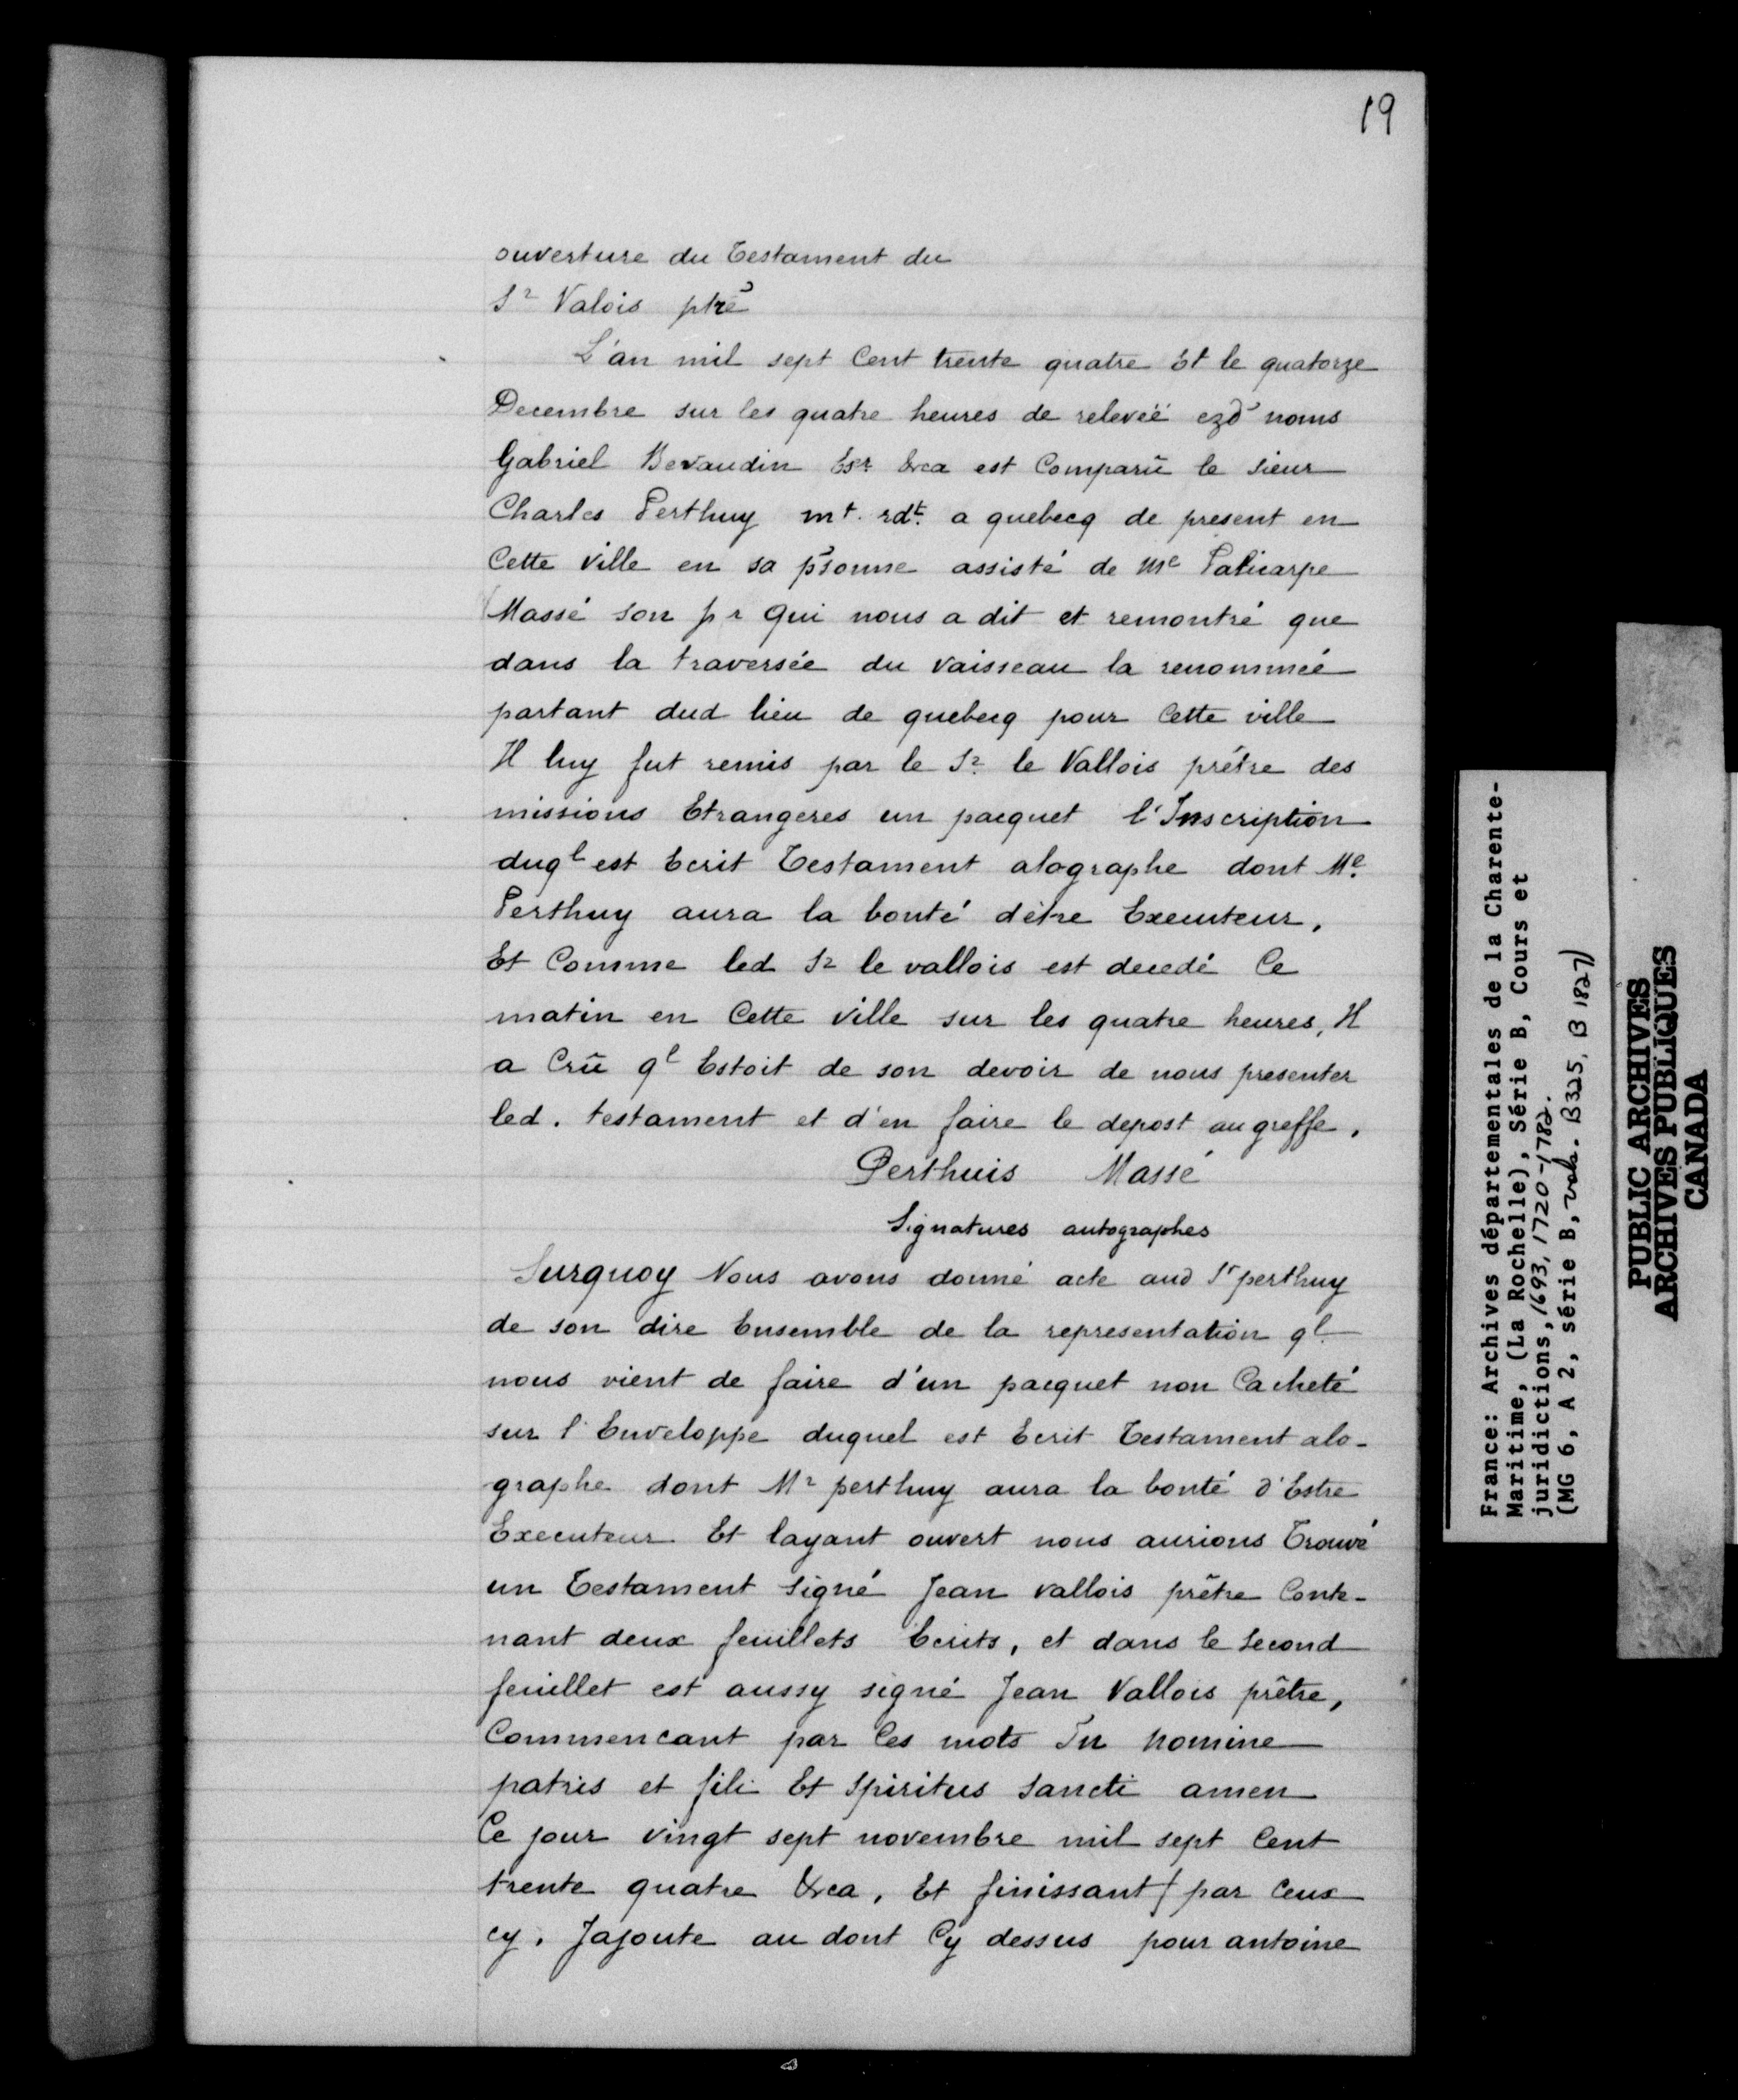 19
ouverture du Testament du
Sr Valois ptrē
L'an mil sept Cent trente quatre Et le quatorze
Decembre sur les quatre heures de relevéé nous
Gabriel Bevaudin Esr &ca est Comparū le sieur
Charles Perthuy mt. rdt. a quebecq de present en
Cette Ville en sa p̄sonne assisté de Me Palicarpe
Massé son pr Qui nous a dit et remontré que
dans la traversée du Vaisseau la renommeé
partant dud lieu de quebecq pour Cette ville
Il luy fut remis par le Sr. le Vallois prêtre des
missions Etrangeres un pacquet l'Inscription
duql est Ecrit Testament alographe dont Mr.
Perthuy aura la bonté dêtre Executeur,
Et Comme led Sr le vallois est decedé Ce
matin en Cette Ville sur les quatre heures, Il
a Crū ql Estoit de son devoir de nous presenter
led. testament et d'en faire le depost au greffe,
Perthuis Massé
Signatures autographes
Surquoy Nous avons donné acte aud Sr perthuy
de son dire Ensemble de la representation ql.
nous vient de faire d'un pacquet non Cacheté
sur l'Enveloppe duquel est Ecrit Testament alo-
graphe dont Mr perthuy aura la bonté d'Estre
Executeur Et layant ouvert nous aurions Trouvé
un Testament Signé Jean vallois prêtre Conte-
nant deux feuillets Ecrits, et dans le Second
feuillet est aussy signé Jean Vallois prêtre,
Commencant par Ces mots In nomine
patris et fili Et Spiritus Sancti amen
Ce jour vingt sept novembre mil sept Cent
trente quatre &ca, Et finissant par Ceux
cy. Jajoute au dont Cy dessus pour antoine
France: Archives départementales de la Charente-
Maritime, (La Rochelle), Série B, Cours et
juridictions, 1693, 1720-1782.
(MG 6, A 2, série B, vols. B325, B 1827)
PUBLIC ARCHIVES
ARCHIVES PUBLIQUES
CANADA